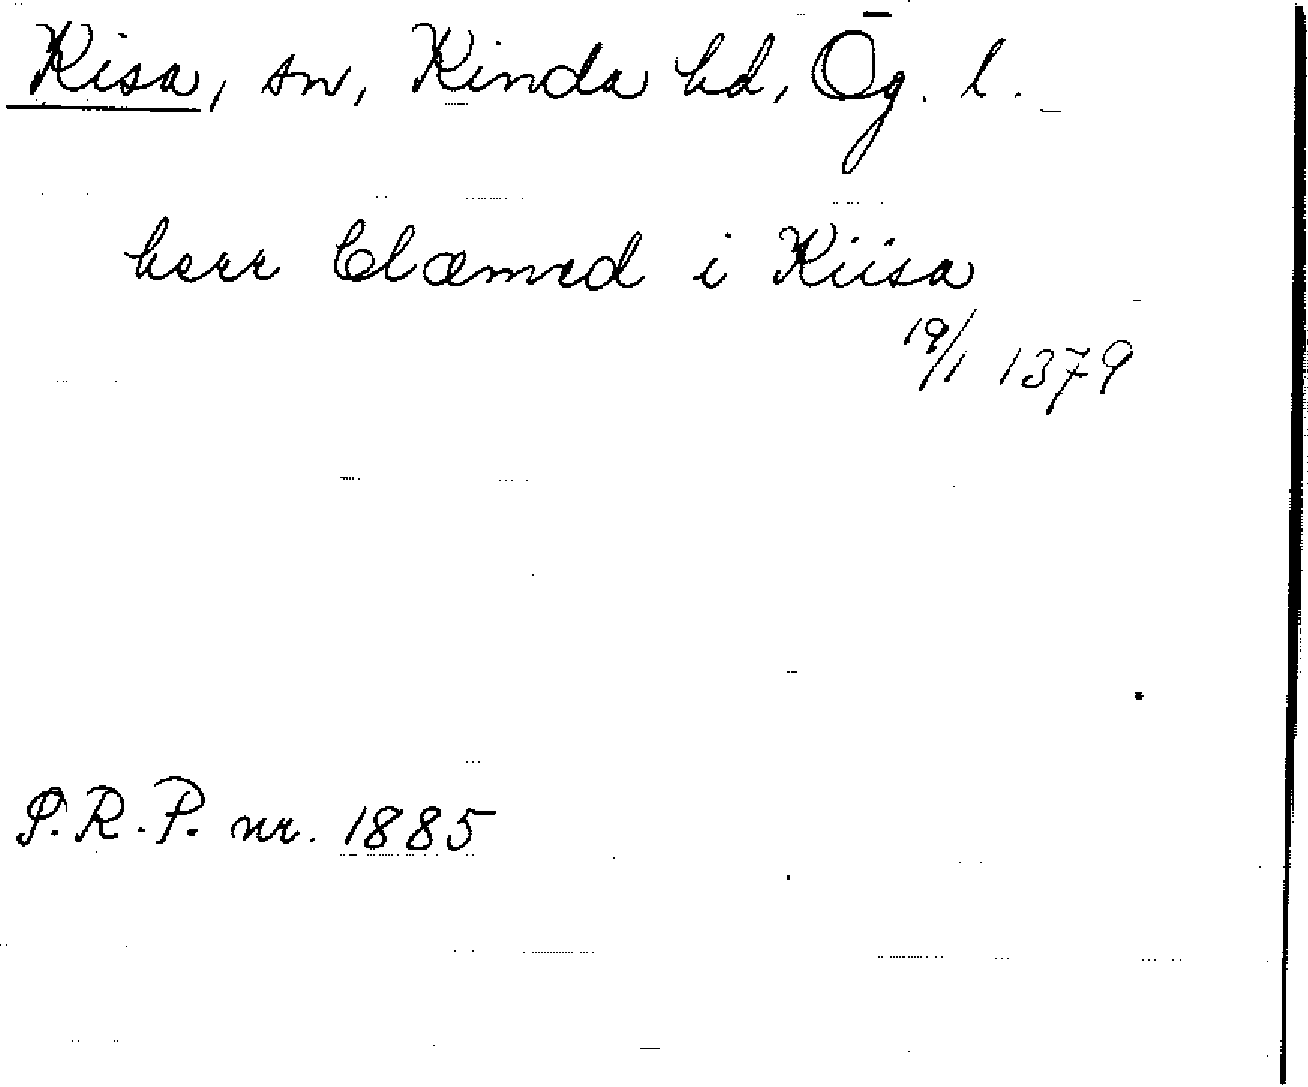 Kisa, sn, Kinda hd, Ög. l.
herr Clæmed i Kiisa
19/1 1379
S.R.P. nr. 1885